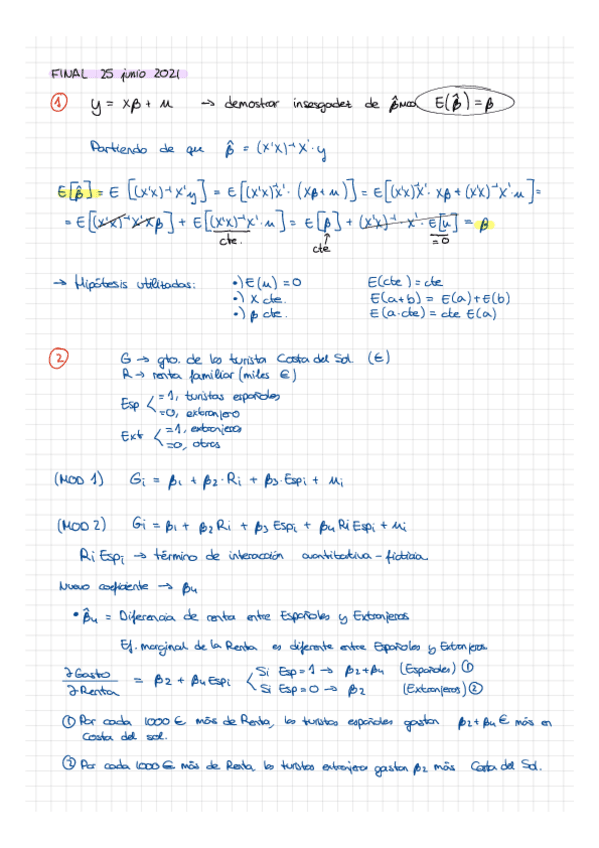 FINAL 25 junio 2021
① y = Xβ + u → demostrar insesgadez de β̂MCO E(β̂) = β
Partiendo de que β̂ = (X'X)⁻¹ X'·y
E[β̂] = E[(X'X)⁻¹X'y] = E[(X'X)⁻¹X'·(Xβ+u)] = E[(X'X)⁻¹X'·Xβ + (X'X)⁻¹X'·u] =
= E[(X'X)⁻¹X'Xβ] + E[(X'X)⁻¹X'·u] = E[β] + (X'X)⁻¹·X'·E[u] = β
cte. cte =0
→ Hipótesis utilizadas: •) E(u) = 0 E(cte) = cte
•) X cte. E(a+b) = E(a)+E(b)
•) β cte. E(a·cte) = cte E(a)
② G → gto. de los turista Costa del Sol (€)
R → renta familiar (miles €)
Esp =1, turistas españoles
=0, extranjero
Ext =1, extranjeros
=0, otros
(MOD 1) Gi = β1 + β2·Ri + β3·Espi + ui
(MOD 2) Gi = β1 + β2Ri + β3Espi + β4RiEspi + ui
RiEspi → término de interacción cuantitativa - ficticia
Nuevo coeficiente → β4
• β̂4 = Diferencia de renta entre Españoles y Extranjeros
Ef. marginal de la Renta es diferente entre Españoles y Extranjeros
∂Gasto/∂Renta = β2 + β4Espi Si Esp=1 → β2+β4 (Españoles) ①
Si Esp=0 → β2 (Extranjeros) ②
① Por cada 1000 € más de Renta, los turistas españoles gastan β2+β4 € más en
Costa del sol.
② Por cada 1000 € más de Renta los turistas extranjeros gastan β2 más Costa del Sol.